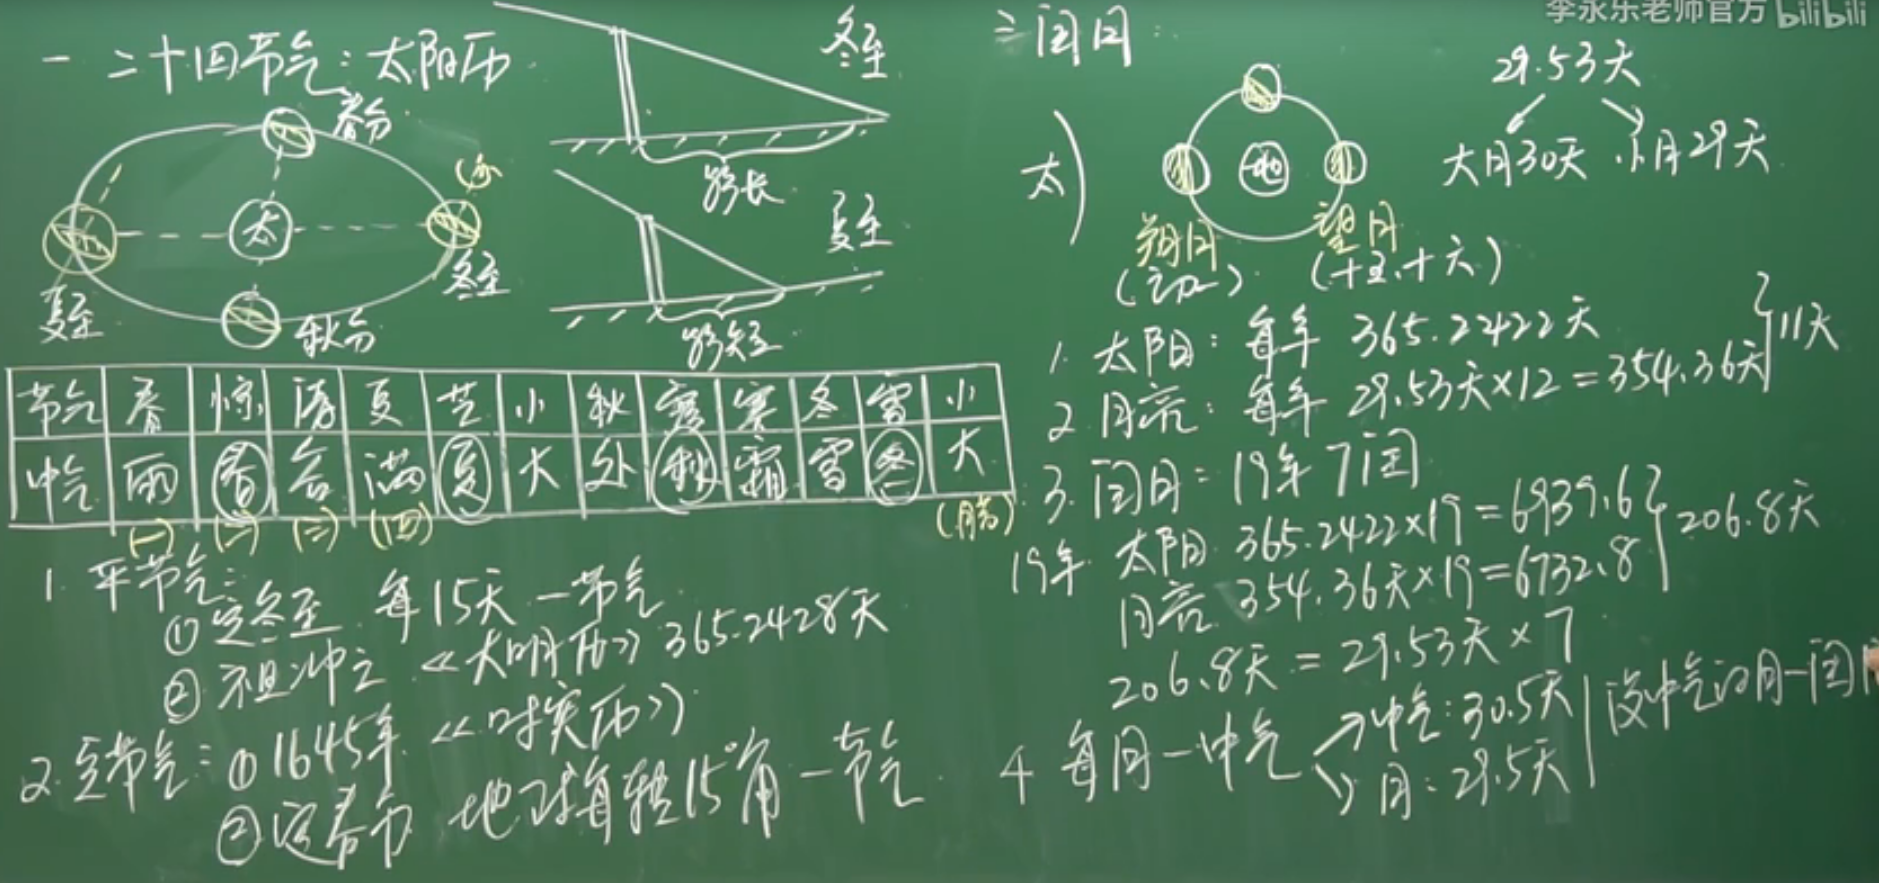 李永乐老师官方 bilibili
一 二十四节气：太阳历
春分
太
夏至
冬至
秋分
冬至
影长
夏至
影短
节气 春 惊 清 夏 芒 小 秋 露 寒 冬 雪 小
中气 雨 春 谷 满 夏 大 处 秋 霜 雪 冬 大
(一) (二) (三) (四) (腊)
1. 平节气：
① 定冬至 每15天一节气
② 祖冲之《大明历》365.2428天
2. 定节气：① 1645年《时宪历》
② 定春分 地球每转15°角一节气
二 闰月：
太
地
朔月
(初一)
望月
(十五、十六)
29.53天
大月30天 小月29天
1. 太阳：每年 365.2422天
2 月亮：每年 29.53天×12=354.36天
11天
3. 闰月：19年7闰
19年 太阳 365.2422×19=6939.6
月亮 354.36天×19=6732.8
206.8天
206.8天=29.53天×7
4 每月一中气
中气：30.5天
月：29.5天
没中气的月一闰